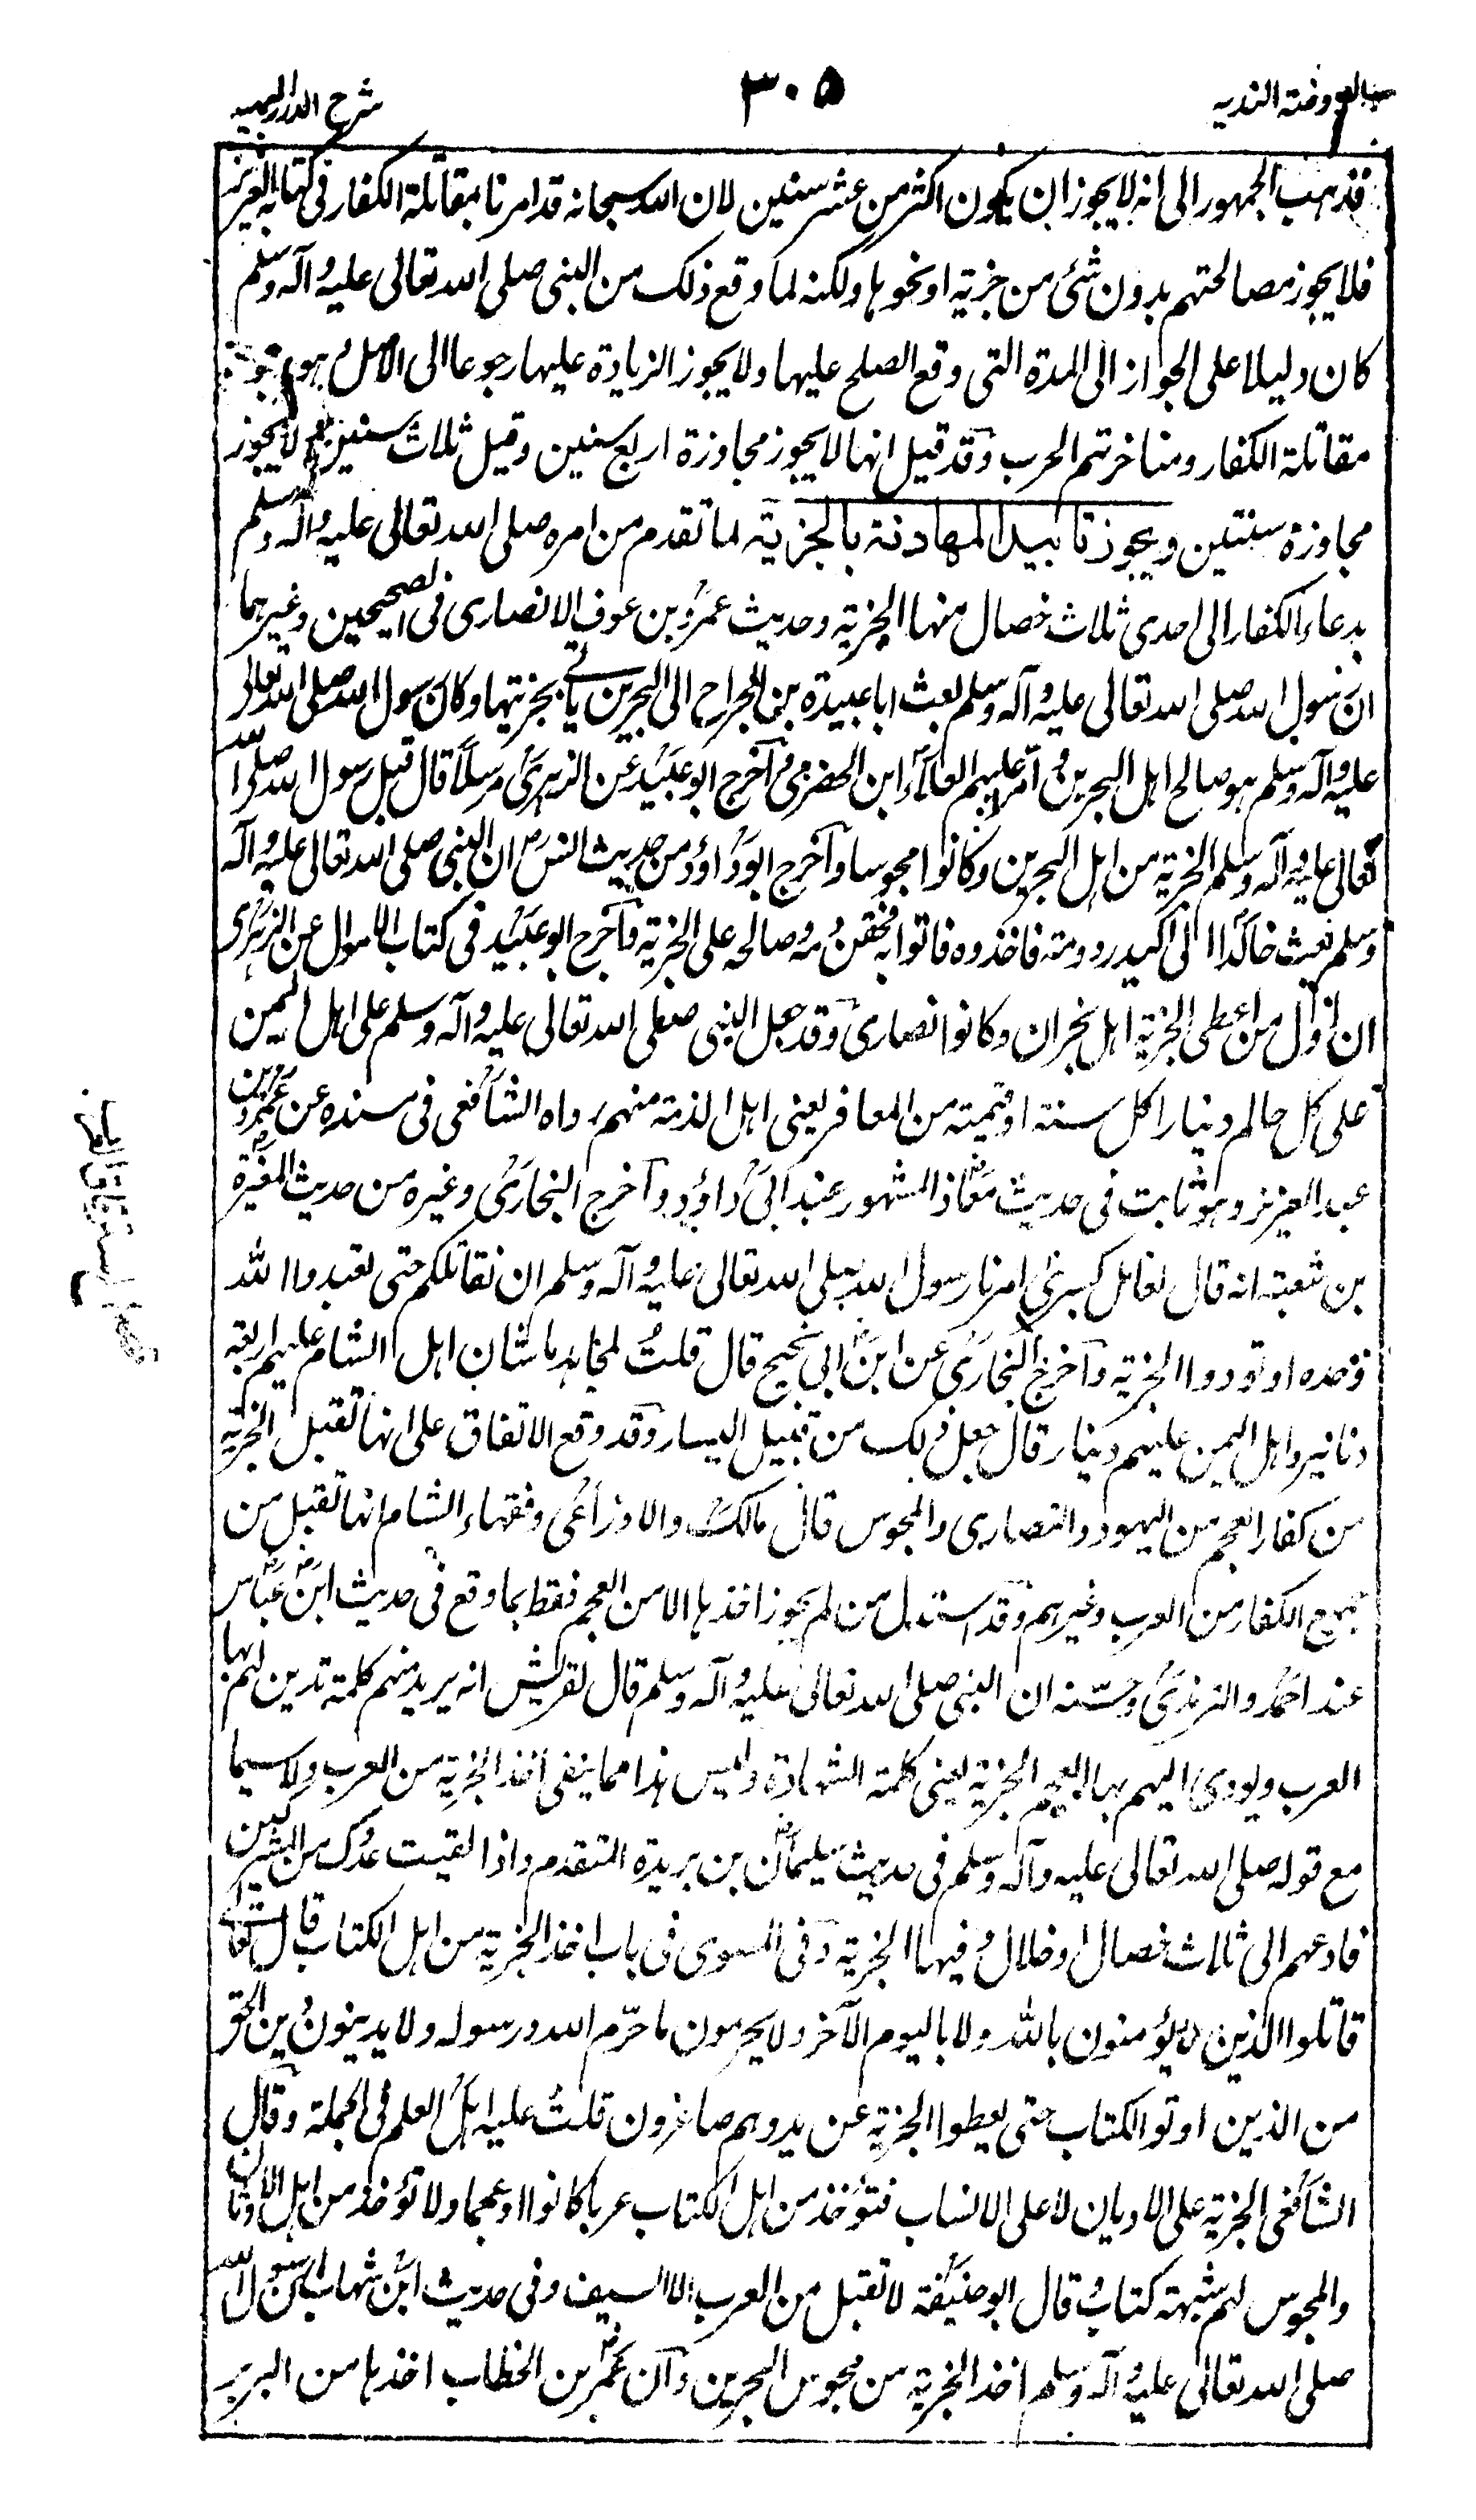 الروضة الندیه
٣٠٥
شرح الدرر البهیه
فذهب الجمهور الی انه لا یجوز ان یکون اکثر من عشر سنین لان الله سبحانه قد امرنا بمقاتلة الکفار فی کتابه العزیز
فلا یجوز مصالحتهم بدون شئ من جزیة او نحوها ولکنه لما وقع ذلک من النبی صلی الله تعالی علیه وآله وسلم
کان دلیلا علی الجواز الی المدة التی وقع الصلح علیها ولا یجوز الزیادة علیها رجوعا الی الاصل وهو
مقاتلة الکفار ومناخرتهم الحرب وقد قیل انها لا یجوز مجاوزة اربع سنین وقیل ثلاث سنین لا یجوز
مجاوزة سنتین ویجوز تابید المهادنة بالجزیة لما تقدم من امره صلی الله تعالی علیه وآله وسلم
بدعاء الکفار الی احدی ثلاث خصال منها الجزیة وحدیث عمرو بن عوف الانصاری فی الصحیحین وغیرهما
ان رسول الله صلی الله تعالی علیه وآله وسلم بعث ابا عبیدة بن الجراح الی البحرین یاتی بجزیتها وکان رسول الله صلی الله تعالی
علیه وآله وسلم هو صالح اهل البحرین وامر علیهم العلاء ابن الحضرمی واخرج ابو عبید عن الزهری مرسلا قال قبل رسول الله صلی الله
تعالی علیه وآله وسلم الجزیة من اهل البحرین وکانوا مجوسا واخرج ابو داؤد من حدیث انس ان النبی صلی الله تعالی علیه وآله
وسلم بعث خالدا الی اکیدر دومة فاخذوه فاتوا به فحقن دمه وصالحه علی الجزیة واخرج ابو عبید فی کتاب الاموال عن الزهری
ان اول من اعطی الجزیة اهل نجران وکانوا نصاری وقد جعل النبی صلی الله تعالی علیه وآله وسلم علی اهل الیمن
علی کل حالم دینارا کل سنة او قیمته من المعافر یعنی اهل الذمة منهم رواه الشافعی فی مسنده عن عمر بن
عبد العزیز وهو ثابت فی حدیث معاذ المشهور عند ابی داؤد واخرج البخاری وغیره من حدیث المغیرة
بن شعبة انه قال لعامل کسری امرنا رسول الله صلی الله تعالی علیه وآله وسلم ان نقاتلکم حتی تعبدوا الله
وحده او تودوا الجزیة واخرج البخاری عن ابن ابی نجیح قال قلت لمجاهد ما شان اهل الشام علیهم اربعة
دنانیر واهل الیمن علیهم دینار قال جعل ذلک من قبیل الیسار وقد وقع الاتفاق علی انها تقبل الجزیة
من کفار العجم من الیهود والنصاری والمجوس قال مالک والاوزاعی وفقهاء الشام انها تقبل من
جمیع الکفار من العرب وغیرهم وقد استدل من لم یجوز اخذها الا من العجم فقط بما وقع فی حدیث ابن عباس
عند احمد والترمذی وحسنه ان النبی صلی الله تعالی علیه وآله وسلم قال لقریش انه یرید منهم کلمة تدین لهم بها
العرب ویودی الیهم بها العجم الجزیة یعنی کلمة الشهادة ولیس هذا مما ینفی اخذ الجزیة من العرب ولا سیما
مع قوله صلی الله تعالی علیه وآله وسلم فی حدیث سلیمان بن بریدة المتقدم واذا لقیت عدوک من المشرکین
فادعهم الی ثلاث خصال او خلال وفیها الجزیة وفی المسوی فی باب اخذ الجزیة من اهل الکتاب قال تعالی
قاتلوا الذین لا یؤمنون بالله ولا بالیوم الآخر ولا یحرمون ما حرّم الله ورسوله ولا یدینون دین الحق
من الذین اوتوا الکتاب حتی یعطوا الجزیة عن ید وهم صاغرون قلت علیه اهل العلم فی الجملة وقال
الشافعی الجزیة علی الادیان لا علی الانساب فتؤخذ من اهل الکتاب عربا کانوا او عجما ولا تؤخذ من اهل الاوثان
والمجوس لهم شبهة کتاب وقال ابو حنیفة لا تقبل من العرب الا السیف وفی حدیث ابن شهاب ان رسول الله
صلی الله تعالی علیه وآله وسلم اخذ الجزیة من مجوس البحرین وان عمر بن الخطاب اخذها من البربر